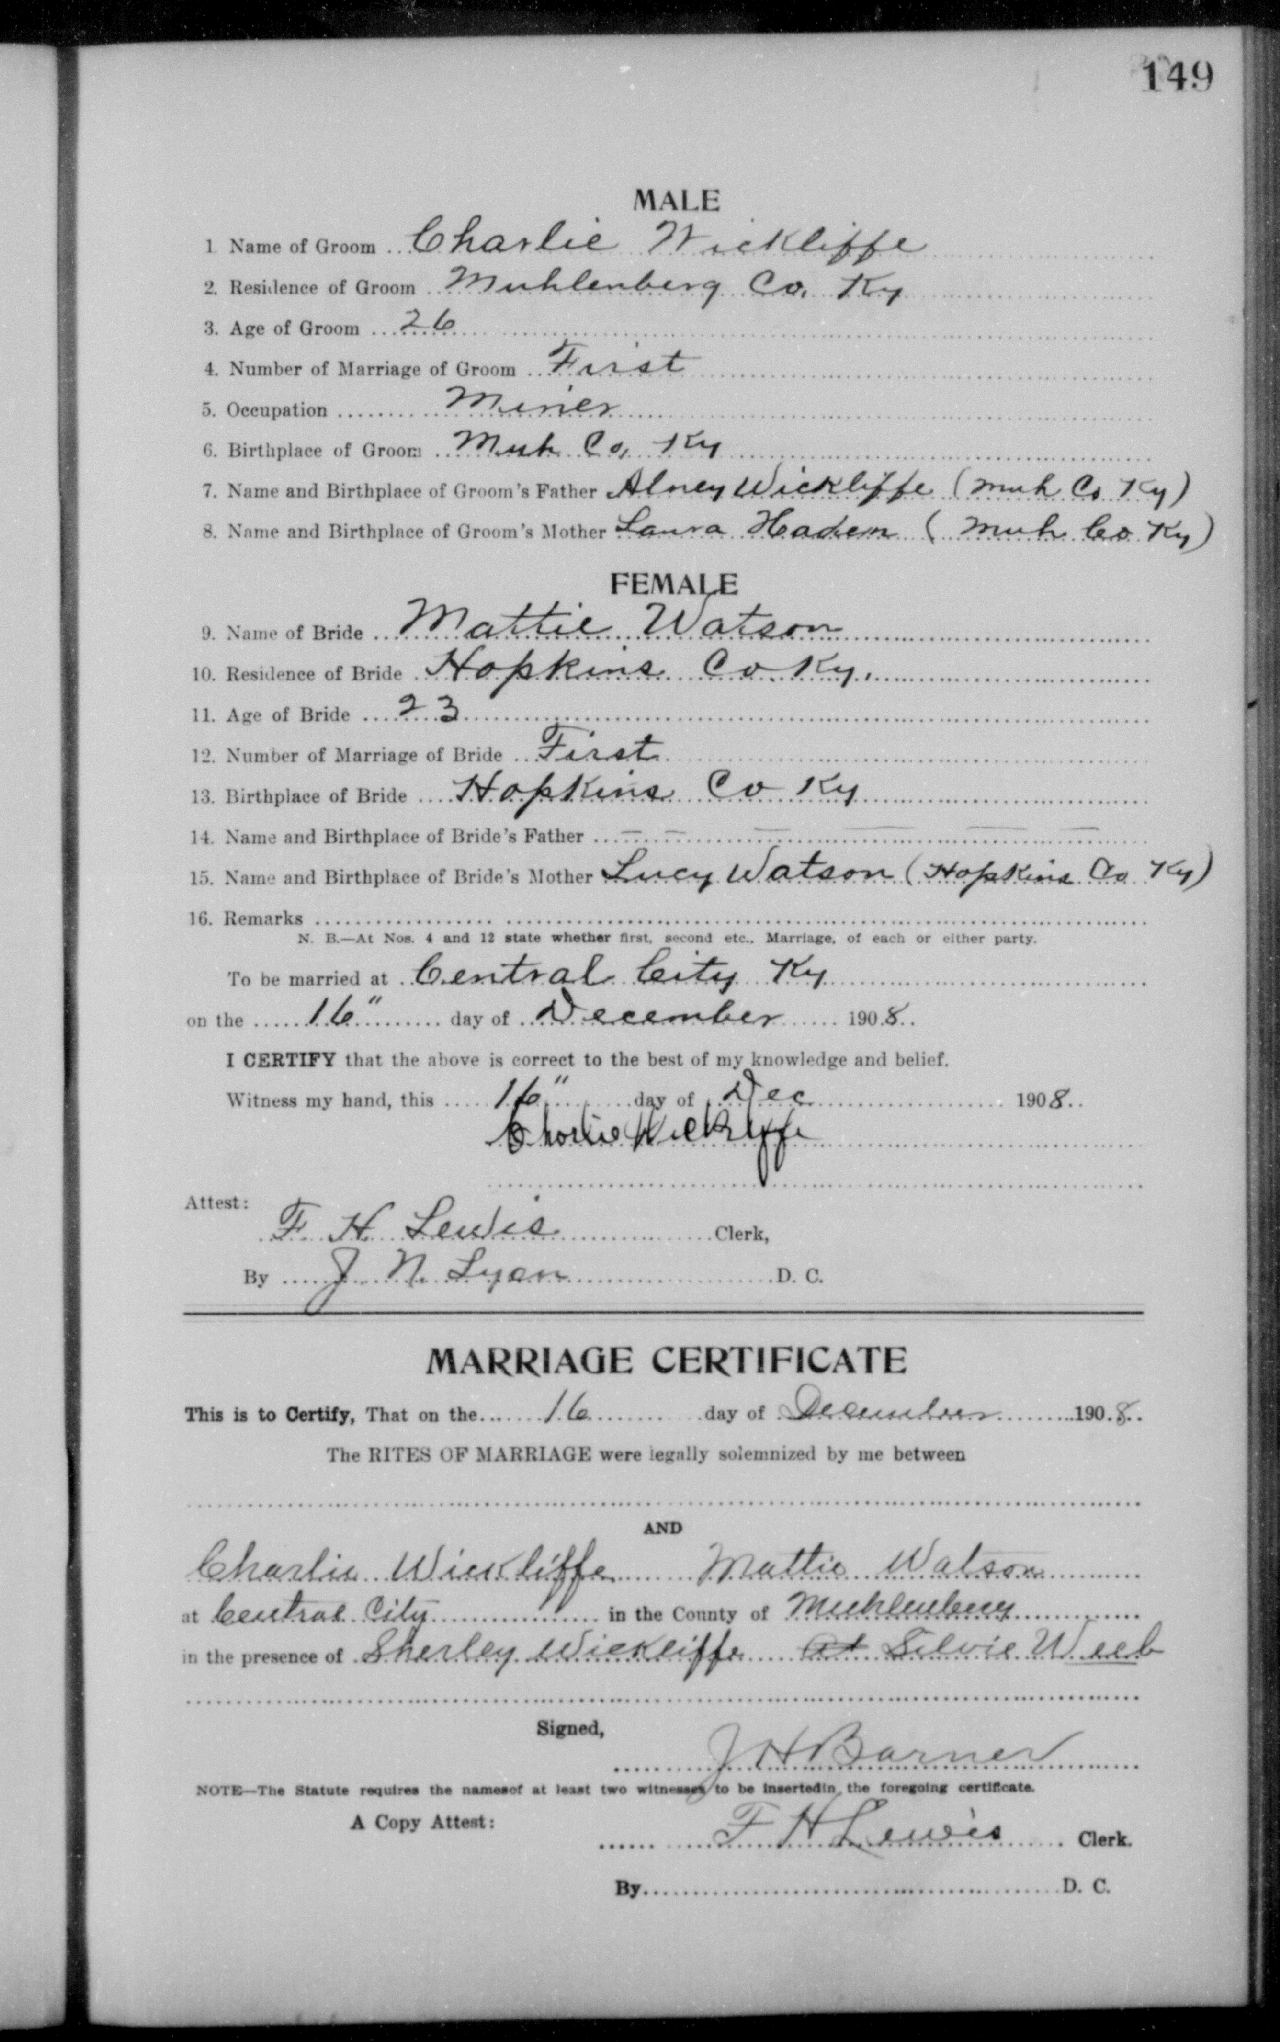 149
MALE
1. Name of Groom Charlie Wickliffe
2. Residence of Groom Muhlenberg Co. Ky
3. Age of Groom 26
4. Number of Marriage of Groom First
5. Occupation Miner
6. Birthplace of Groom Muh Co, Ky
7. Name and Birthplace of Groom's Father Alney Wickliffe (Muh Co Ky)
8. Name and Birthplace of Groom's Mother Laura Haden (Muh Co Ky)
FEMALE
9. Name of Bride Mattie Watson
10. Residence of Bride Hopkins Co Ky.
11. Age of Bride 23
12. Number of Marriage of Bride First
13. Birthplace of Bride Hopkins Co Ky
14. Name and Birthplace of Bride's Father — — — — — —
15. Name and Birthplace of Bride's Mother Lucy Watson (Hopkins Co Ky)
16. Remarks
N. B.—At Nos. 4 and 12 state whether first, second etc., Marriage, of each or either party.
To be married at Central City Ky
on the 16" day of December 1908
I CERTIFY that the above is correct to the best of my knowledge and belief.
Witness my hand, this 16" day of Dec 1908
Charlie Wickliffe
Attest:
F. H. Lewis Clerk,
By J. N. Lyon D. C.
MARRIAGE CERTIFICATE
This is to Certify, That on the 16 day of December 1908
The RITES OF MARRIAGE were legally solemnized by me between
AND
Charlie Wickliffe Mattie Watson
at Central City in the County of Muhlenberg
in the presence of Sherley Wickliffe Silvie Weeb
Signed,
J H Barner
NOTE—The Statute requires the namesof at least two witnesses to be insertedin the foregoing certificate.
A Copy Attest:
F H Lewis Clerk.
By D. C.